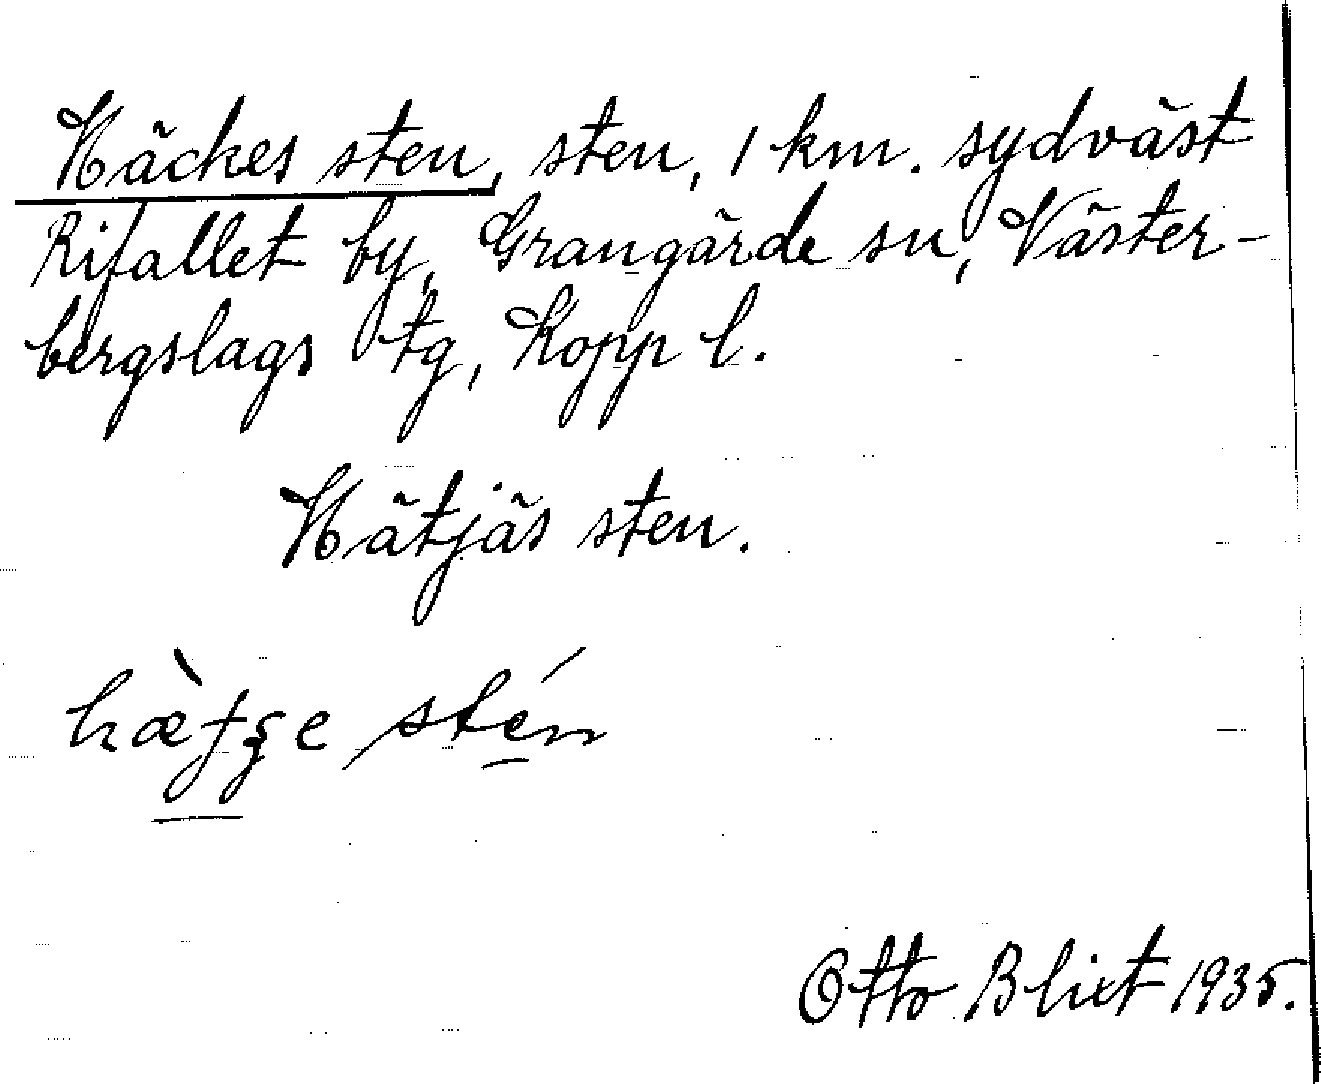 Häckes sten, sten, 1 km. sydväst
Rifallet by, Grangärde sn, Väster-
bergslags tg, Kopp l.
Hätjäs sten.
stén
Otto Blixt 1935.